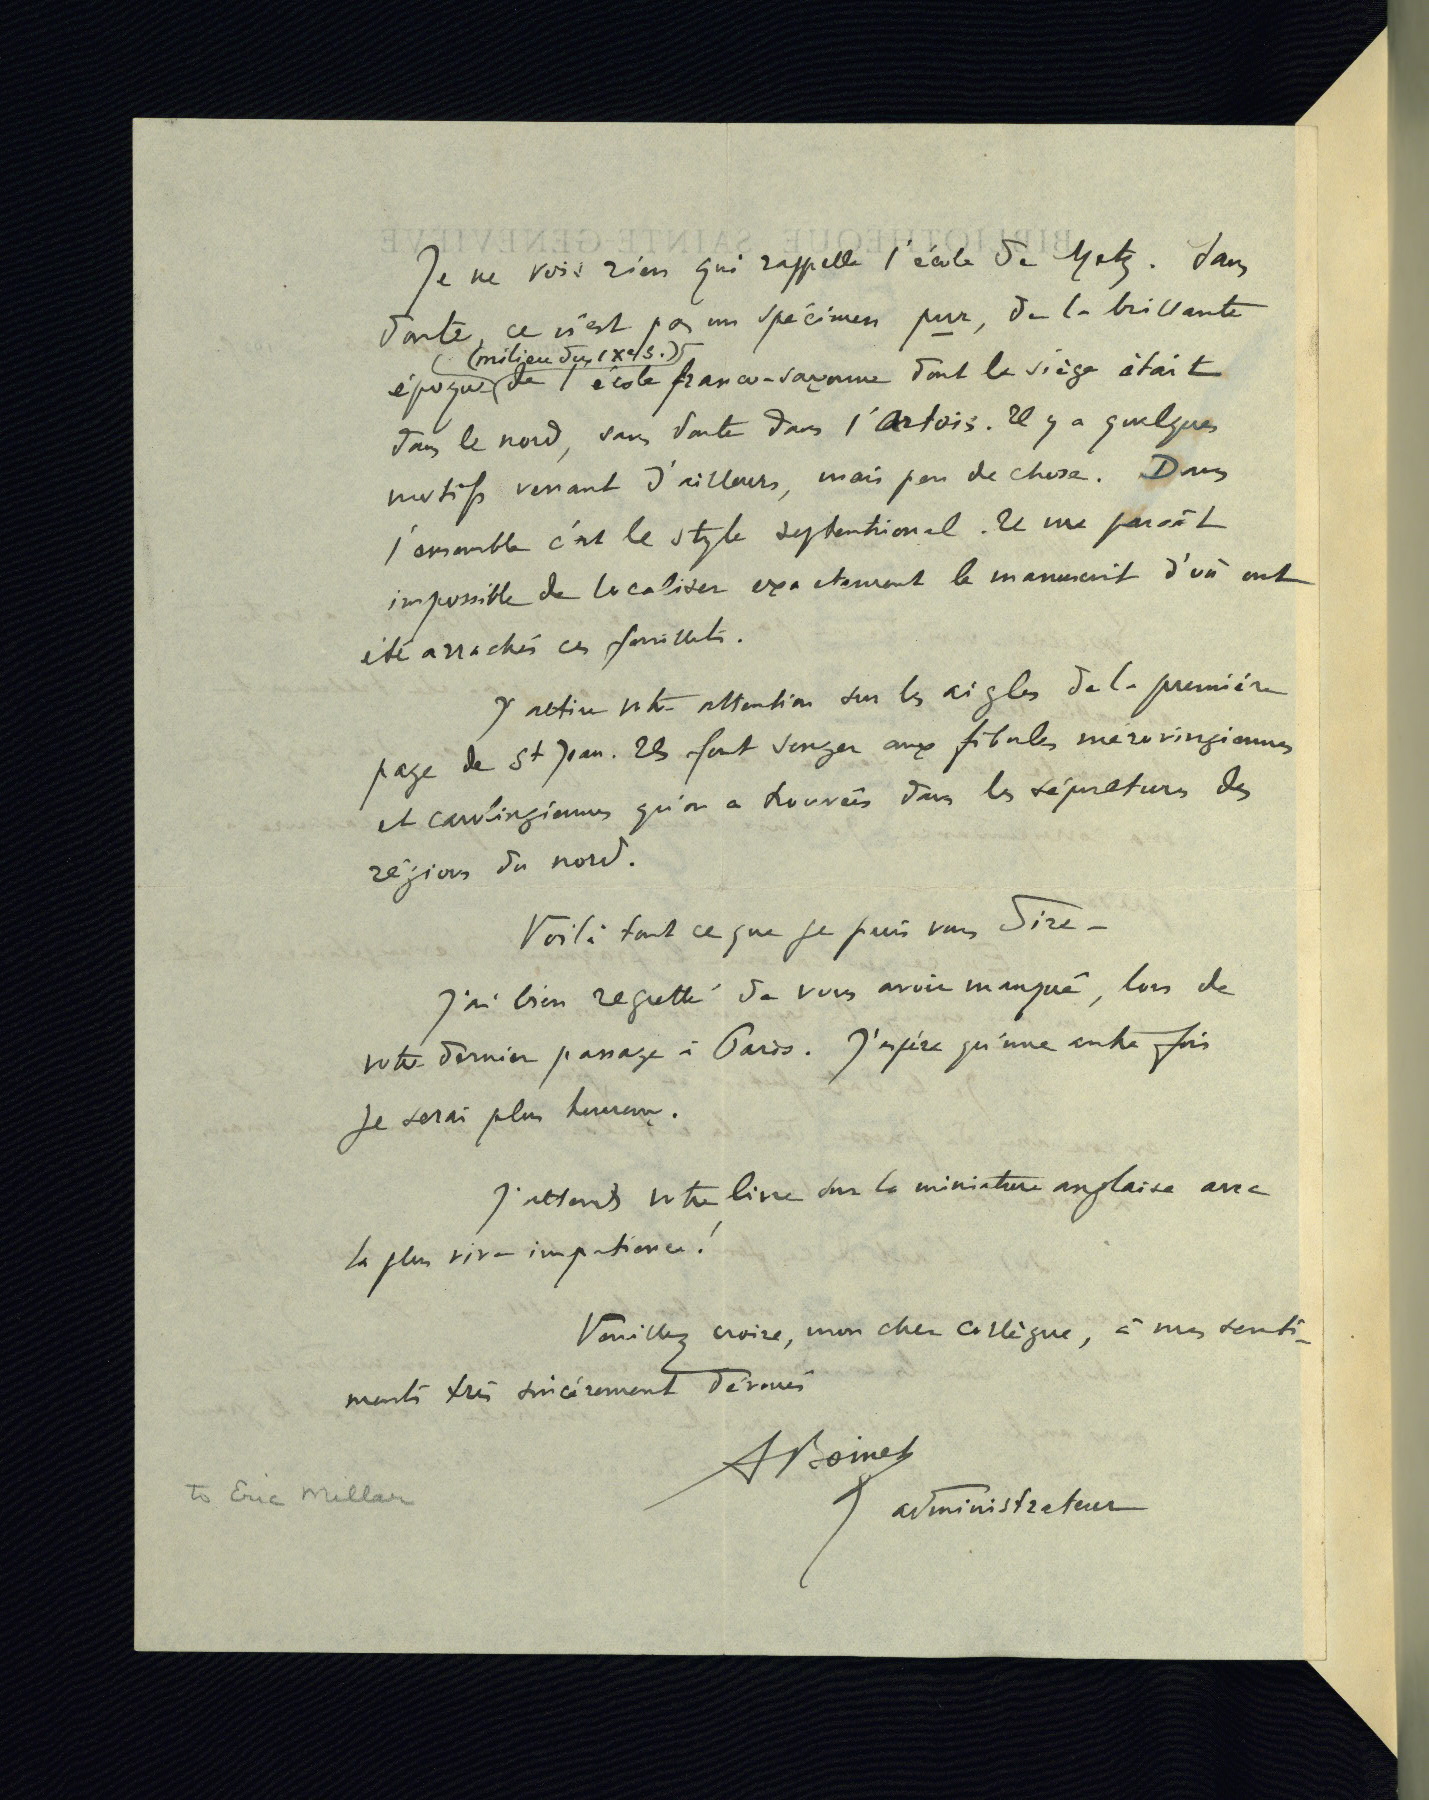 Je ne vois rien qui rappelle l'école de Metz. Sans
doute, ce n'est pas un spécimen pur, de la brillante
(milieu du IXe s.)
époque de l'école franco-saxonne dont le siège était
dans le nord, sans doute dans l'Artois. Il y a quelques
motifs venant d'ailleurs, mais peu de chose. Dans
l'ensemble c'est le style septentrional. Il me paraît
impossible de localiser exactement le manuscrit d'où ont
été arrachés ces feuillets.
J'attire votre attention sur les aigles de la première
page de St Jean. Ils font songer aux fibules mérovingiennes
et carolingiennes qu'on a trouvées dans les sépultures des
régions du nord.
Voilà tout ce que je puis vous dire -
J'ai bien regretté de vous avoir manqué, lors de
votre dernier passage à Paris. J'espère qu'une autre fois
je serai plus heureux.
J'attends votre livre sur la miniature anglaise avec
la plus vive impatience!
Veuillez croire, mon cher collègue, à mes senti-
ments très sincèrement dévoués
A Boinet
administrateur
to Eric Millar
BIBLIOTHÈQUE SAINTE-GENEVIÈVE